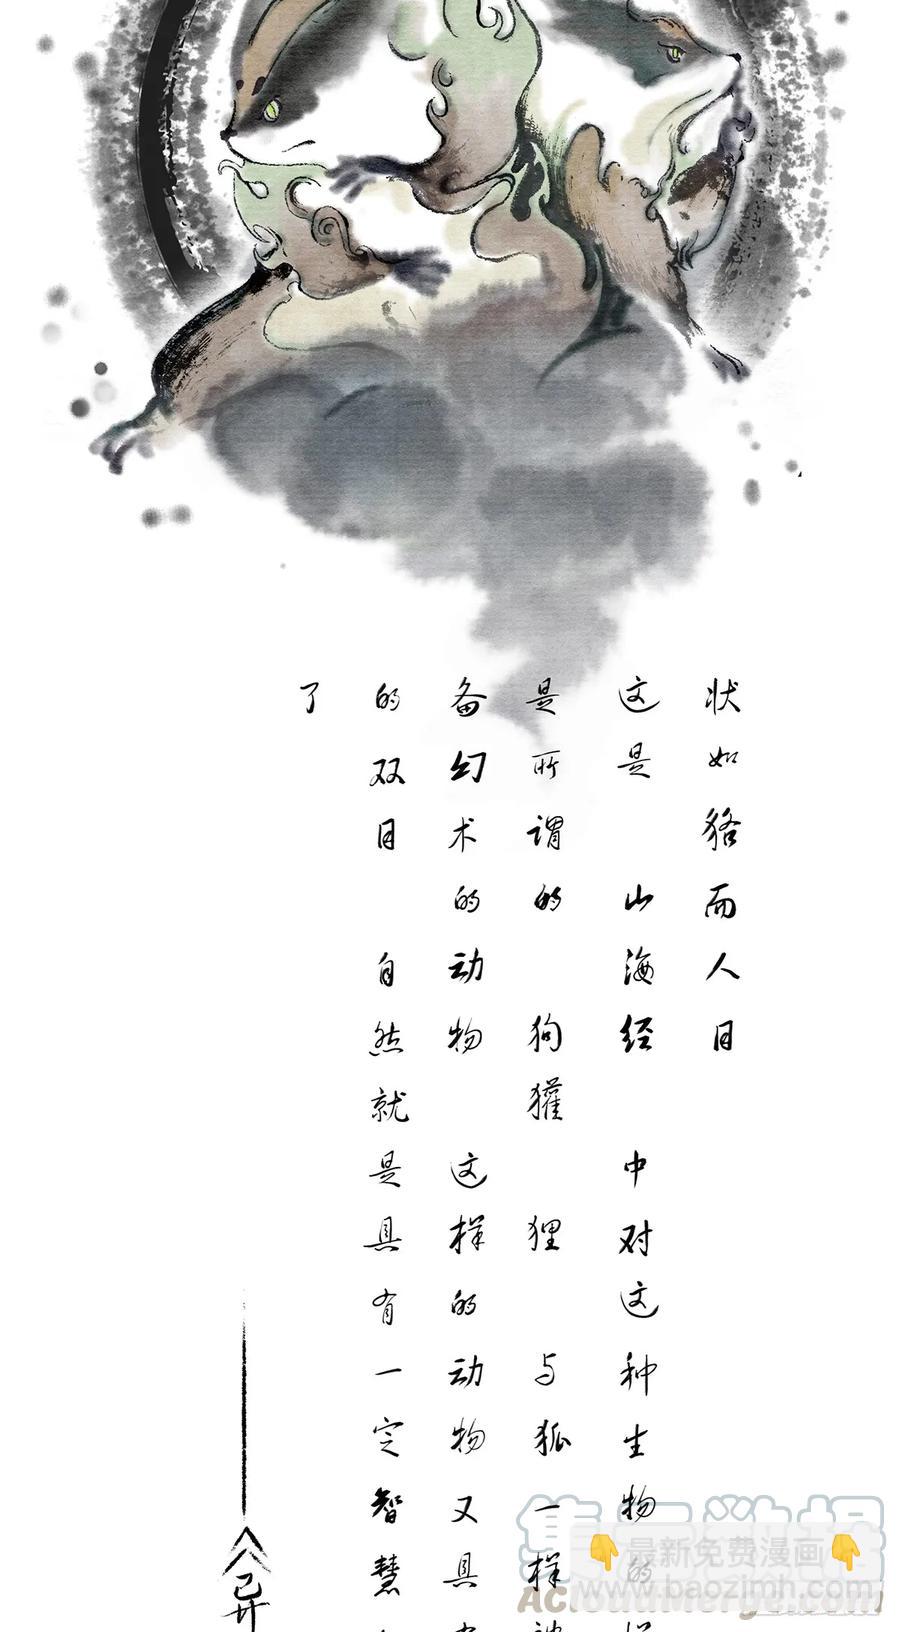 状如狢而人目
这是 山海经 中对这种生物的
是所谓的 狗獾 狸 与狐一样被
备幻术的动物 这样的动物又具有
的双目 自然就是具有一定智慧
了
异
集云数据
ACloudMerge.com
👇最新免费漫画👇
www.baozimh.com